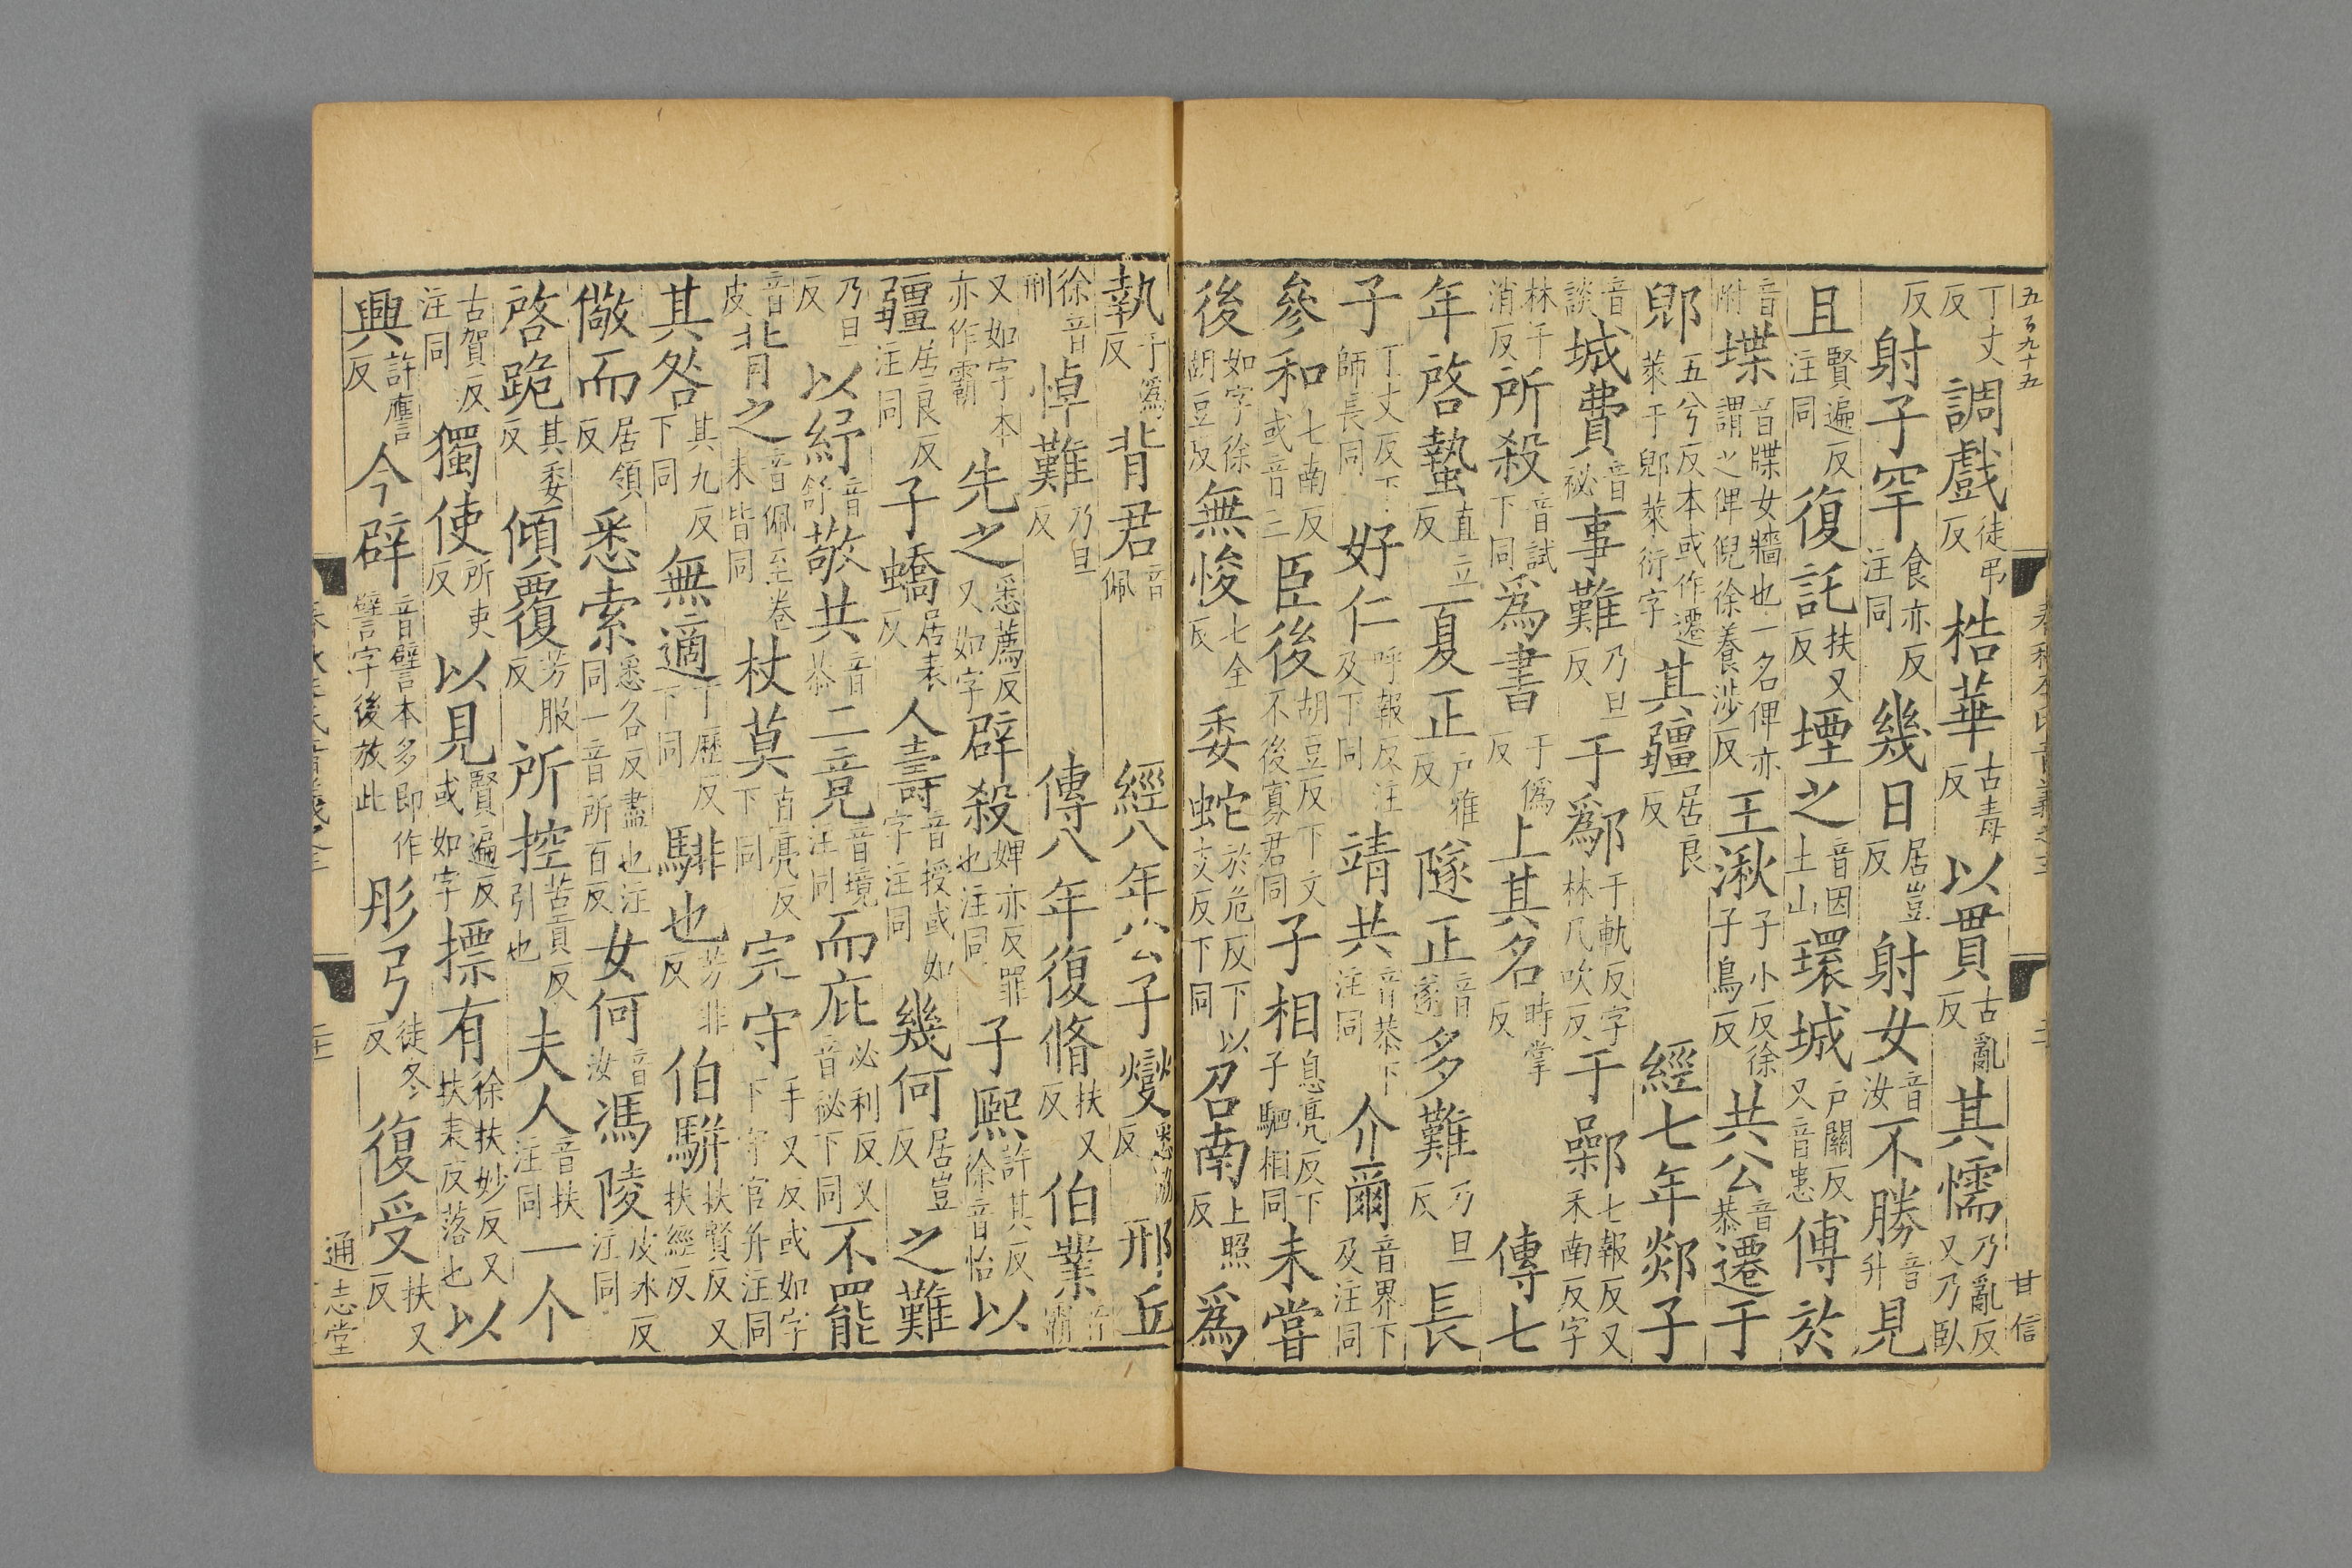 五百九十五
甘信
丁丈反調戲徒弔反梏華古毒反以貫古亂反其懦乃亂反又乃臥
反射子罕食亦反注同幾日居豈反射女音汝不勝音升見
且賢遍反注同復託扶又反堙之音因土山環城戶關反又音患傅於
音附堞音牒女牆也一名俾亦謂之俾倪徐養涉反王湫子小反徐子鳥反共公音恭遷于
郳五兮反本或作遷萊于郳萊衍字其疆居良反經七年郯子
音談城費音祕事難乃旦反于鄬于軌反字林几吹反于鄵七報反又禾南反字
林千消反所殺音試下同爲書于僞反上其名時掌反傳七
年啓蟄直立反夏正戶雅反隧正音遂多難乃旦反長
子丁丈反下師長同好仁呼報反注及下同靖共音恭下注同介爾音界下及注同
參和七南反或音三臣後胡豆反下文不後寡君同子相息亮反下子駟相同未嘗
後如字徐胡豆反無悛七全反委蛇於危反下以支反下同召南上照反爲
執于爲反背君音佩經八年公子燮悉協反邢丘
徐音刑悼難乃旦反傳八年復脩扶又反伯業音霸
又如字本亦作霸先之悉薦反又如字辟殺婢亦反罪也注同子熙許其反徐音怡以
疆居良反注同子蟜居表反人壽音授或如字注同幾何居豈反之難
乃旦反以紓音舒敬共音恭二竟音境注同而庇必利反又音祕下同不罷
音皮背之音佩至卷末皆同杖莫直亮反下同完守手又反或如字下守官并注同
其咎其九反下同無適丁歷反下同騑也芳非反伯駢扶賢反又扶經反
儆而居領反悉索悉各反盡也注同一音所百反女何音汝馮陵皮冰反注同
啓跪其委反傾覆芳服反所控苦貢反引也夫人音扶注同一个
古賀反注同獨使所吏反以見賢遍反或如字摽有徐扶妙反又扶表反落也以
興許應反今辟音譬本多即作譬字後放此彤弓徒冬反復受扶又反
通志堂